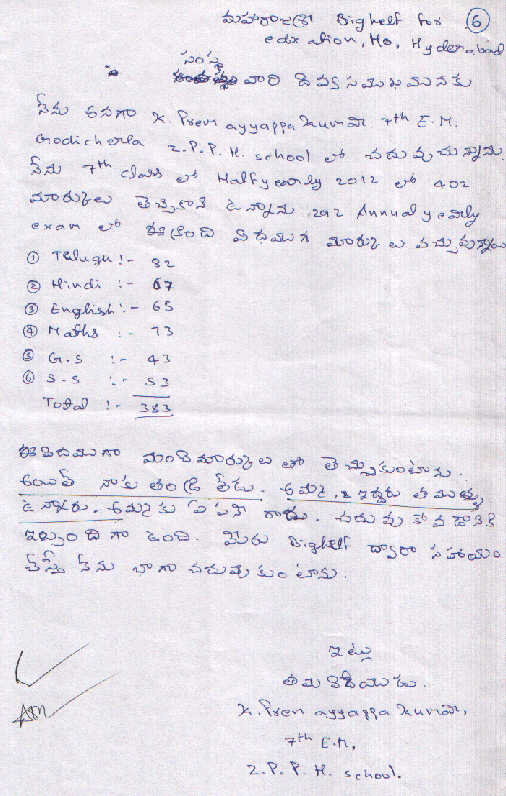 మహారాజశ్రీ Bighelf for ⑥
education, Ho, Hyderabad
సంస్థ
వారి దివ్యసముఖమునకు
నేను అనగా K. Prem ayyappa Kumar 7th E.M.
Godicherla Z.P.P.H. school లో చదువుచున్నాను.
నేను 7th class లో Halfyearly 2012 లో 402
మార్కులు తెచ్చుకొని ఉన్నాను. 2012 Annual yearly
exam లో ఈ క్రింది విధముగ మార్కులు వచ్చివున్నాయి
① Telugu :- 82
② Hindi :- 67
③ English :- 65
④ Maths :- 73
⑤ G.S :- 43
⑥ S.S :- 53
Total :- 383
ఈ విదముగా మంచి మార్కులు తో తెచ్చుకుంటాను.
అయితే నాకు తండ్రి లేడు. అమ్మ, ఇద్దరు తమ్ముళ్ళు
ఉన్నారు. అమ్మకు ఏ పని రాదు. చదువుకోవడానికి
ఇబ్బందిగా ఉంది. మీరు Bighelf ద్వారా సహాయం
చేస్తే నేను బాగా చదువుకుంటాను.
ఇట్లు
తమ విదేయుడు.
K. Prem ayyappa Kumar,
7th E.M,
Z.P.P.H. school.